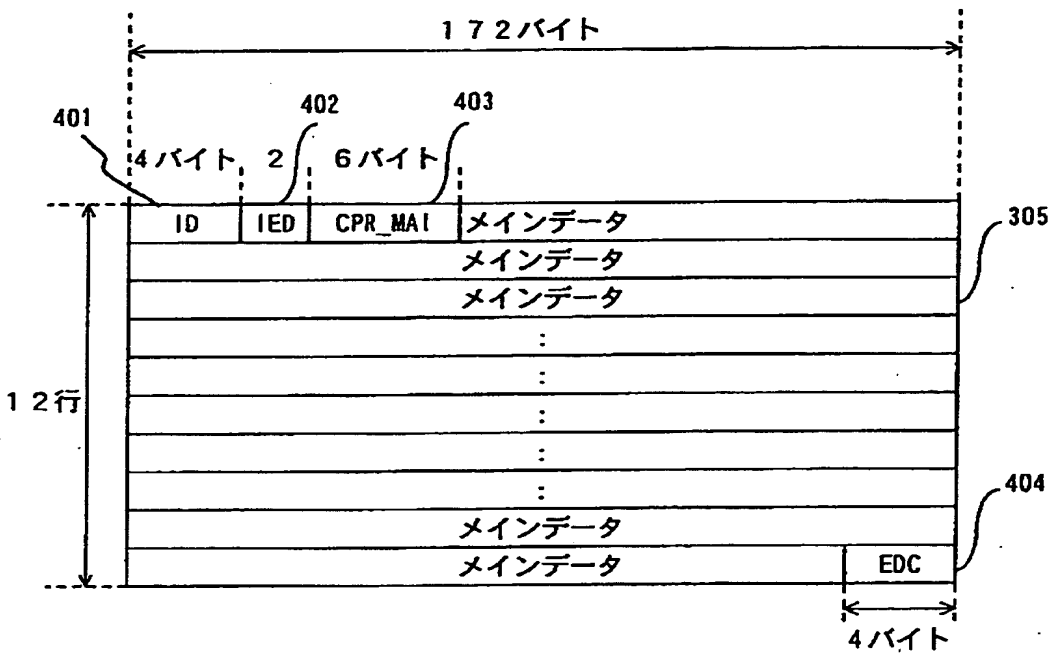 172バイト
401
402
403
4バイト 2 6バイト
ID IED CPR_MAI メインデータ
305
メインデータ
メインデータ
:
:
12行
:
:
:
404
メインデータ
メインデータ EDC
4バイト